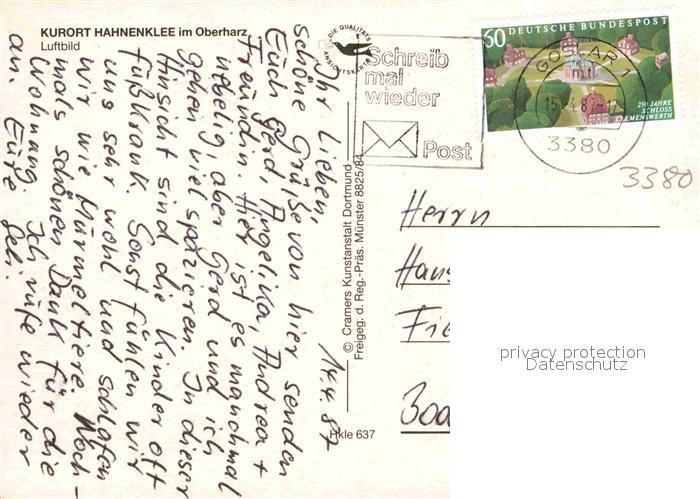 KURORT HAHNENKLEE im Oberharz
Luftbild
DIE QUALITÄTS
ANSICHTSKARTE
14.4.87
Ihr Lieben,
schöne Grüße von hier senden
Euch Gerd, Angelika, Andrea +
Freundin. Hier ist es manchmal
nebelig, aber Gerd und ich
gehen viel spazieren. In dieser
Hinsicht sind die Kinder oft
fußkrank. Sonst fühlen wir
uns sehr wohl und schlafen
wir wie Murmeltiere. Noch-
mals schönen Dank für die
Wohnung. Ich rufe wieder
an. Eure
© Cramers Kunstanstalt Dortmund
Freigeg. d. Reg.-Präs. Münster 8825/84
Hkle 637
Schreib
mal
wieder
Post
60 DEUTSCHE BUNDESPOST
250 JAHRE
SCHLOSS
CLEMENSWERTH
1987
GOSLAR 1
mf
15.-4.87-17
3380
3380
Herrn
Hans
Fie
300
privacy protection
Datenschutz